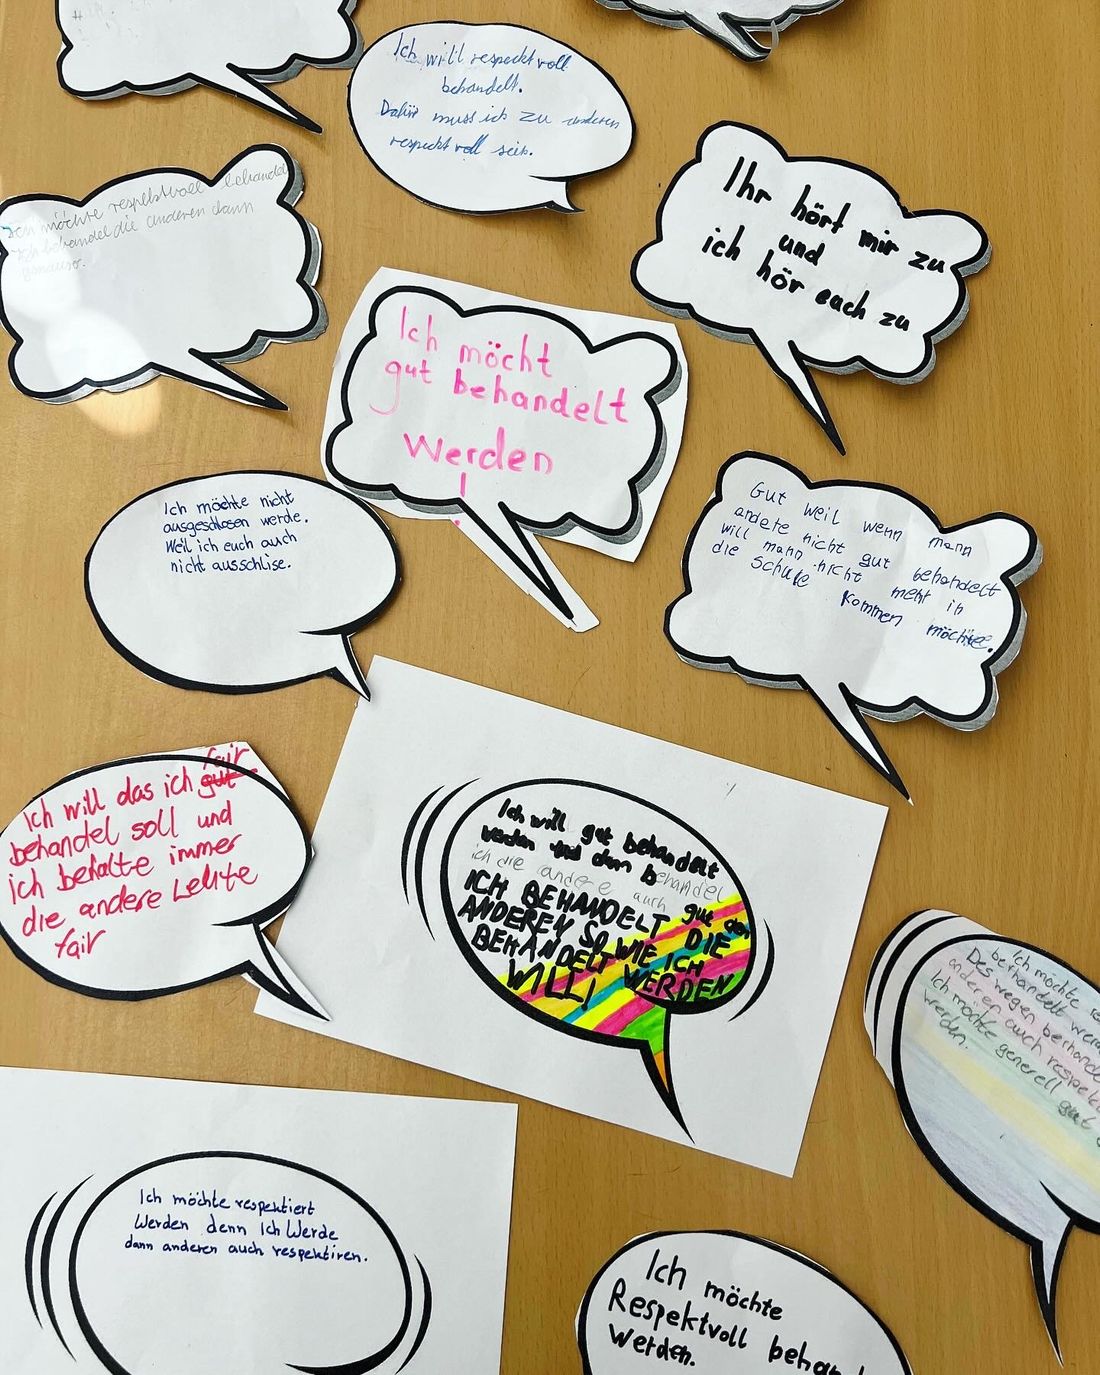 Ich will respecktvoll
behandelt.
Dafür muss ich zu anderen
respecktvoll sein.
Ich möchte respektvoll behandel
Ich behandel die anderen dann
genauso.
Ihr hört mir zu
und
ich hör euch zu
Ich möcht
gut behandelt
werden
!
Ich möchte nicht
ausgeschlosen werde.
Weil ich euch auch
nicht ausschlise.
Gut weil wenn mann
andere nicht gut behandelt
will mann nicht mehr in
die Schule kommen möchte.
fair
Ich will das ich gut
behandel soll und
ich behalte immer
die andere Leute
fair
Ich will gut behandelt
werden und dann behandel
ich die andere auch gut
ICH BEHANDELT DIE
ANDEREN SO WIE ICH
BEHANDELT WERDEN
WILL!
Ich möchte
berhandelt
Des wegen
anderer auch
Ich möchte generell gut
werden.
Ich möchte respektiert
Werden denn Ich Werde
dann anderen auch respektiren.
Ich möchte
Respektvoll behan
werden.